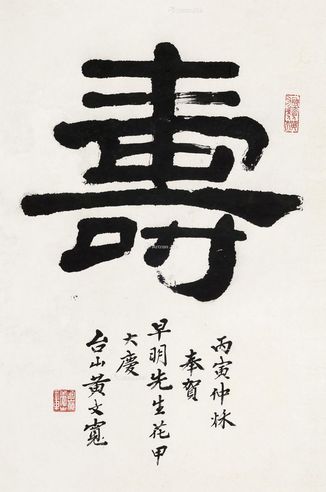 壽
丙寅仲秌
奉賀
早明先生花甲
大慶
台山黃文寬